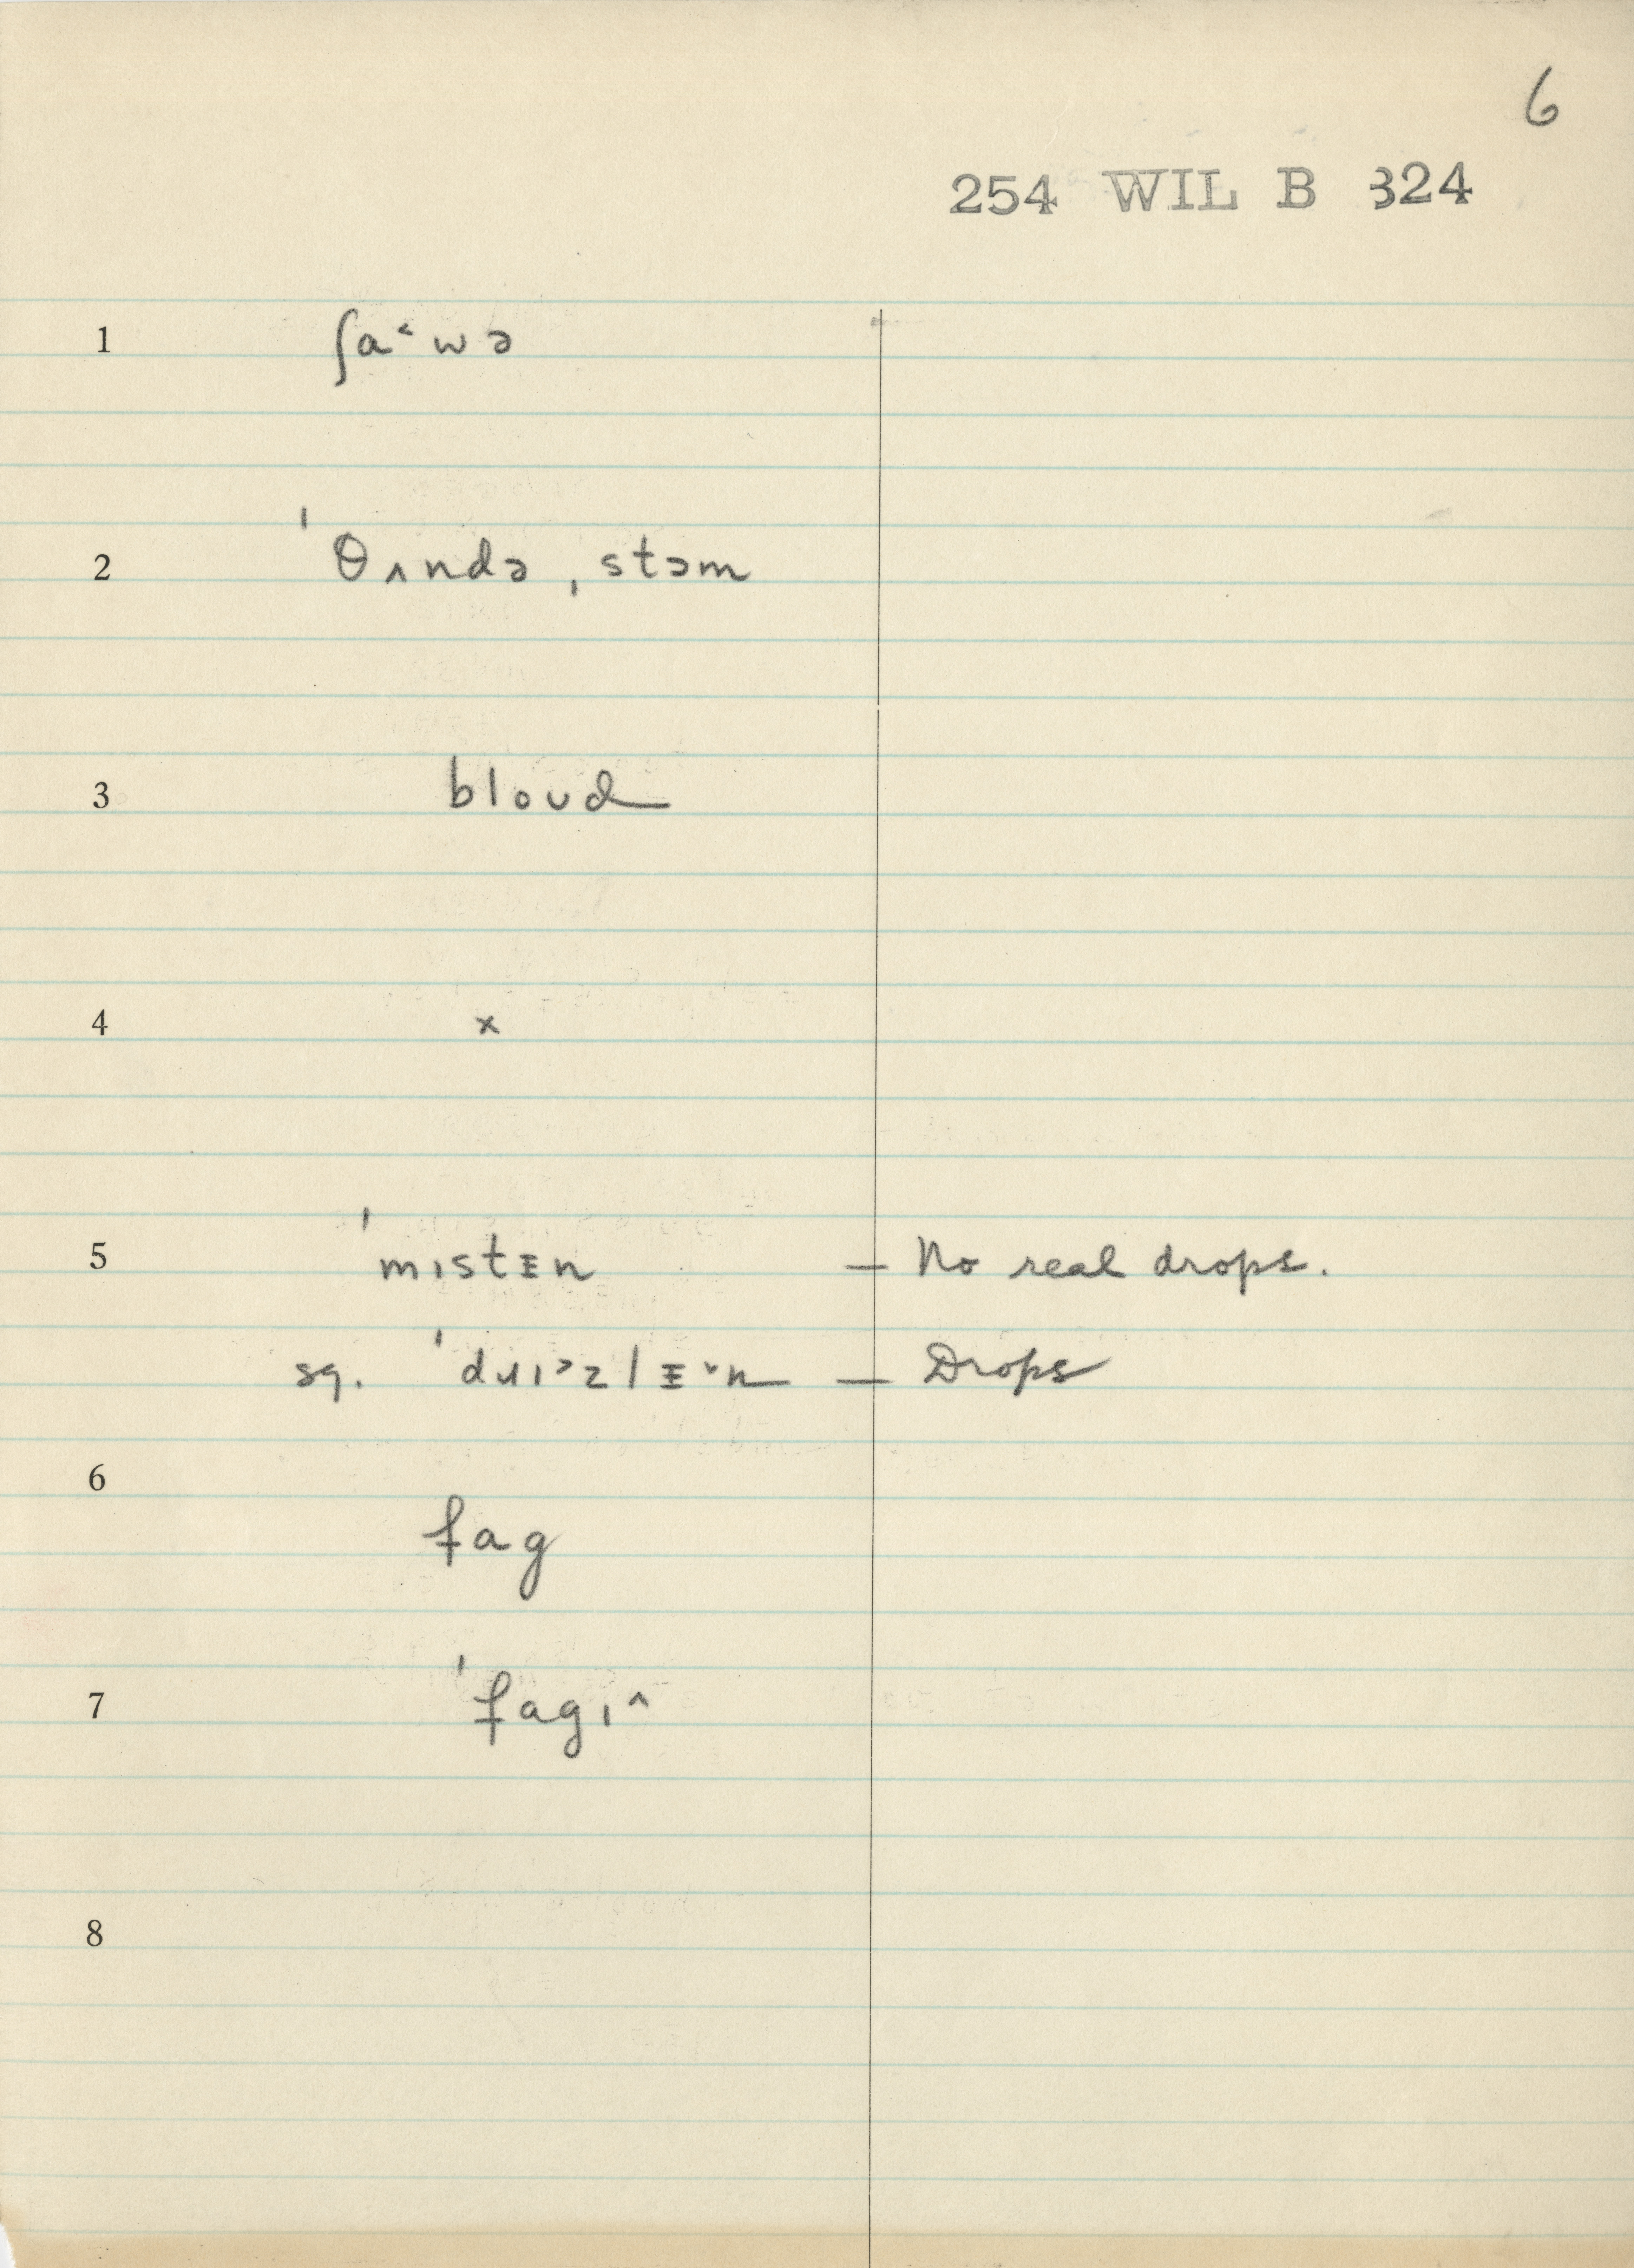 6
254 WIL B 324
1 ʃa˂wə
2 ˈθʌndə ˌstɔm
3 bloʊd
4 x
5 ˈmɪstᴇn — No real drops.
sq. ˈdɹɪ˃zlᴇ˅n — Drops
6 fag
7 ˈfagɪ˄
8